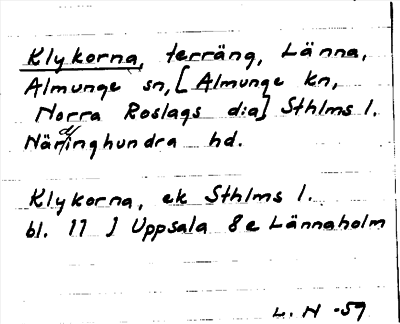 Klykorna, terräng, Länna,
Almunge sn, [Almunge kn,
Norra Roslags d:a] Sthlms l.
Närdinghundra hd.
Klykorna, ek Sthlms l.
bl. 11 J Uppsala 8e Lännaholm
L. H -59